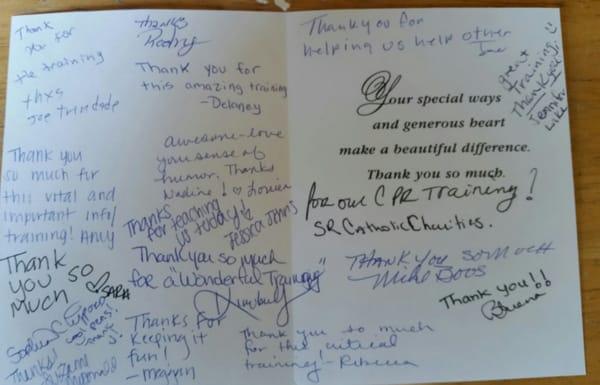 Thank
you for
the training
thxs
Joe Trindade
Thanks
Rodny
Thank you for
this amazing training
-Delaney
Thank you for
helping us help other
Jae
great
Training
Thank you
Jennifer
Your special ways
and generous heart
make a beautiful difference.
Thank you so much.
for our CPR Training!
SR Catholic Charities.
Awesome-love
your sense of
humor. Thanks
Nadine! ♡ Louisa
Thank you
so much for
this vital and
important info/
training! Amy
Thanks
for teaching
us today!
Jessica Jenns
Thank
you so
much ♡ SARA
Thank you so much
for a "Wonderful Training"
Thank you so much
Mike Boos
Thank you!!
Briena
Thanks for
keeping it
fun!
- meggin
Thank you so much
for this critical
training! - Rebecca
Thanks!